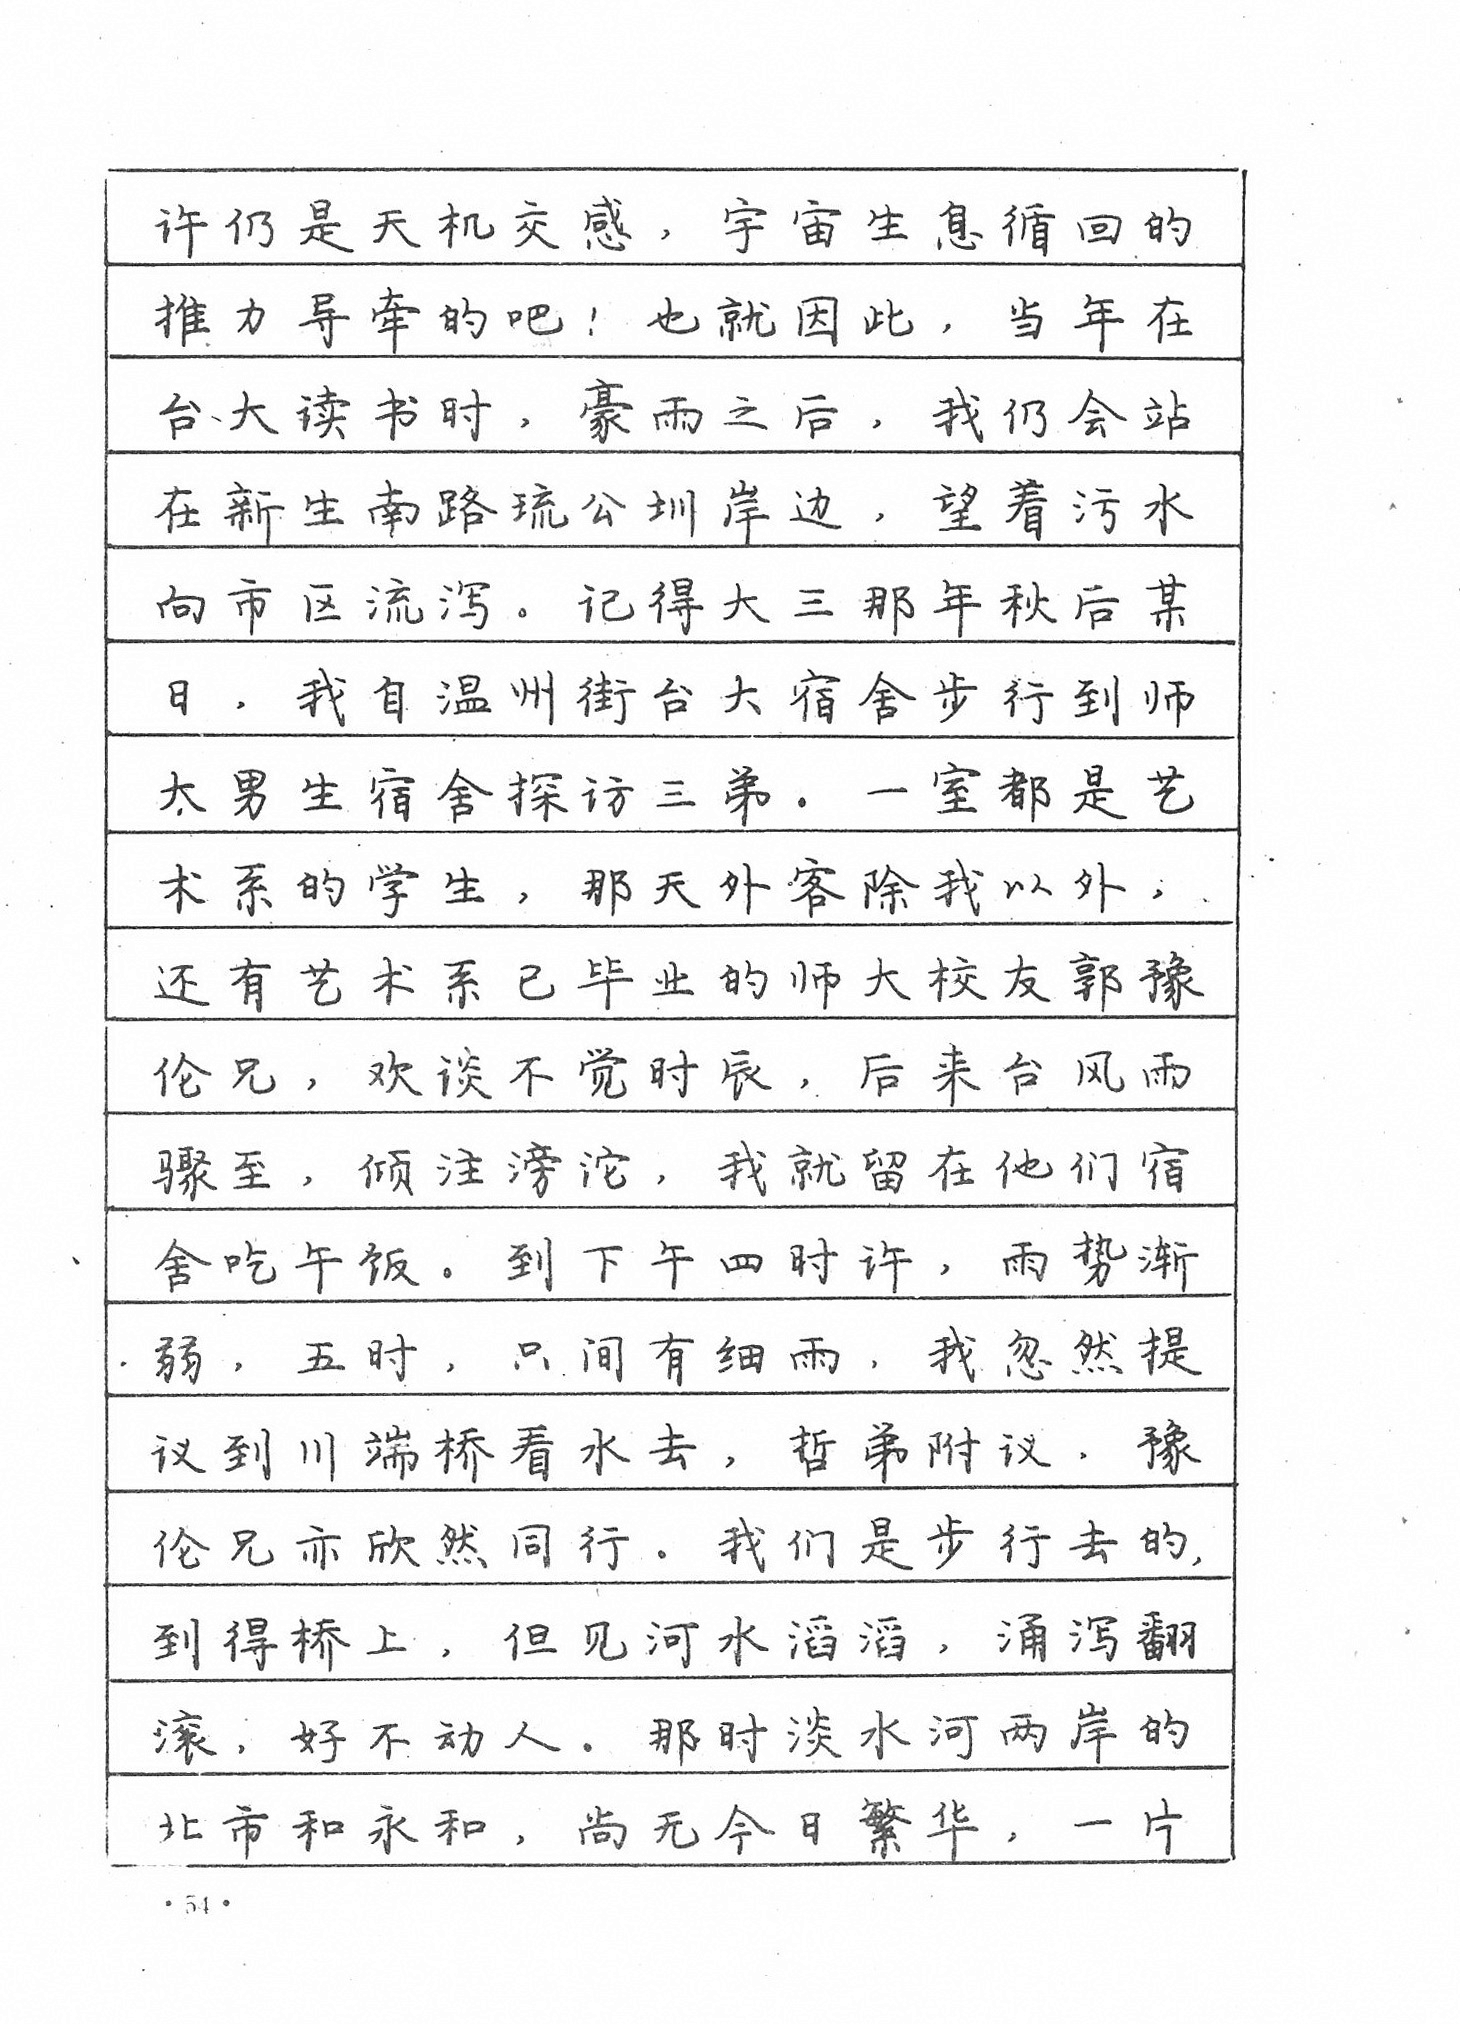 许仍是天机交感，宇宙生息循回的
推力导牵的吧！也就因此，当年在
台大读书时，豪雨之后，我仍会站
在新生南路琉公圳岸边，望着污水
向市区流泻。记得大三那年秋后某
日，我自温州街台大宿舍步行到师
大男生宿舍探访三弟。一室都是艺
术系的学生，那天外客除我以外，
还有艺术系已毕业的师大校友郭豫
伦兄，欢谈不觉时辰，后来台风雨
骤至，倾注滂沱，我就留在他们宿
舍吃午饭。到下午四时许，雨势渐
弱，五时，只间有细雨，我忽然提
议到川端桥看水去，哲弟附议，豫
伦兄亦欣然同行。我们是步行去的，
到得桥上，但见河水滔滔，涌泻翻
滚，好不动人。那时淡水河两岸的
北市和永和，尚无今日繁华，一片
·54·